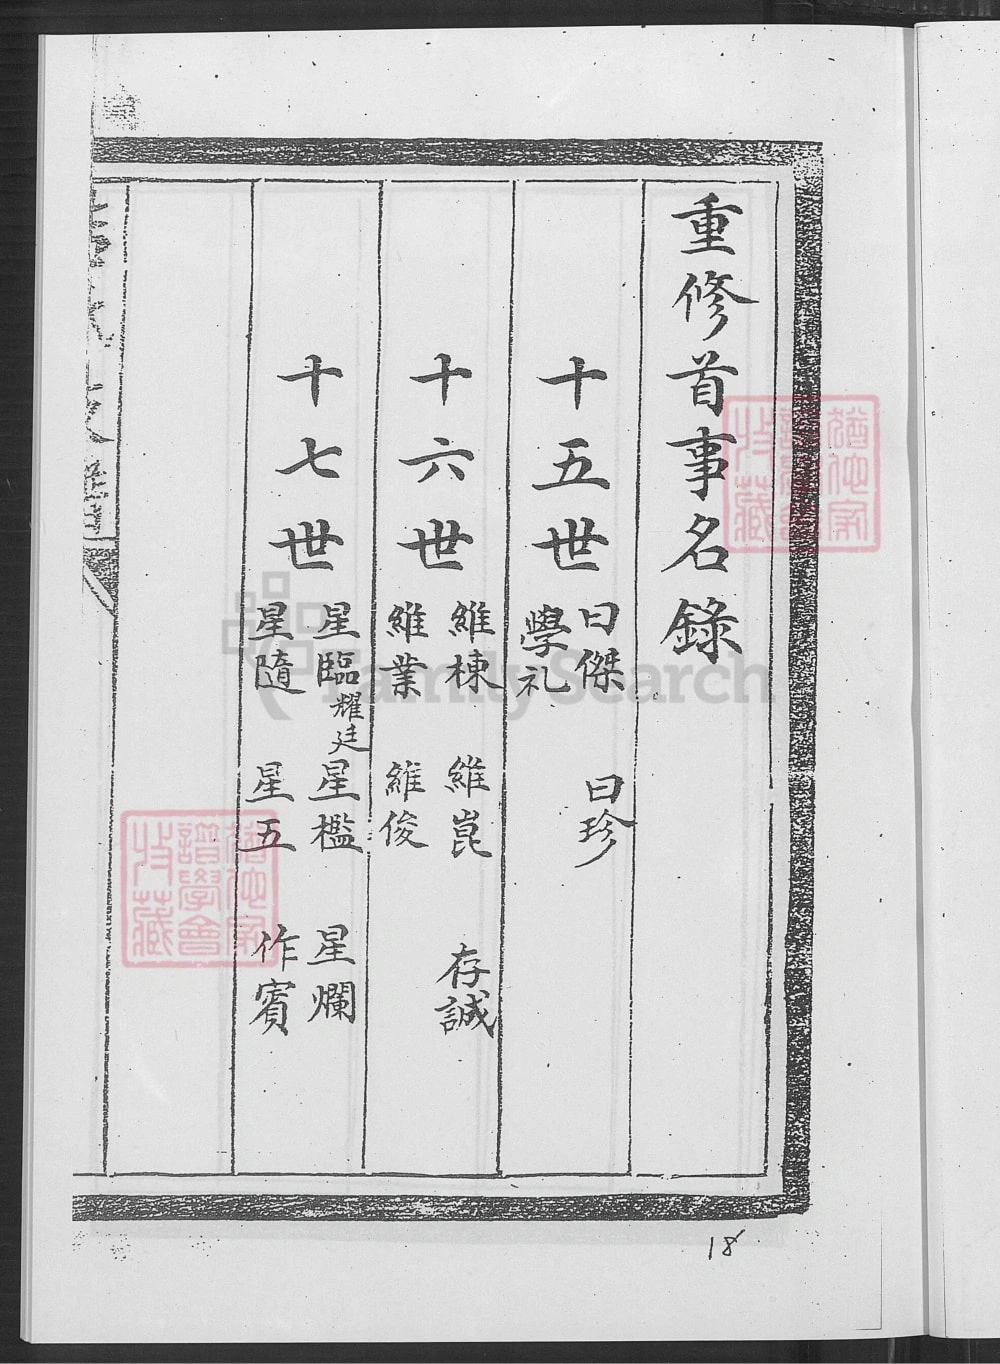 重修首事名錄
十五世
曰傑 曰珍
學礼
十六世
維棟 維崑 存誠
維業 維俊
十七世
星臨 耀廷 星檻 星爛
星隨 星五 作賓
族譜
譜學會
收藏
FamilySearch
18